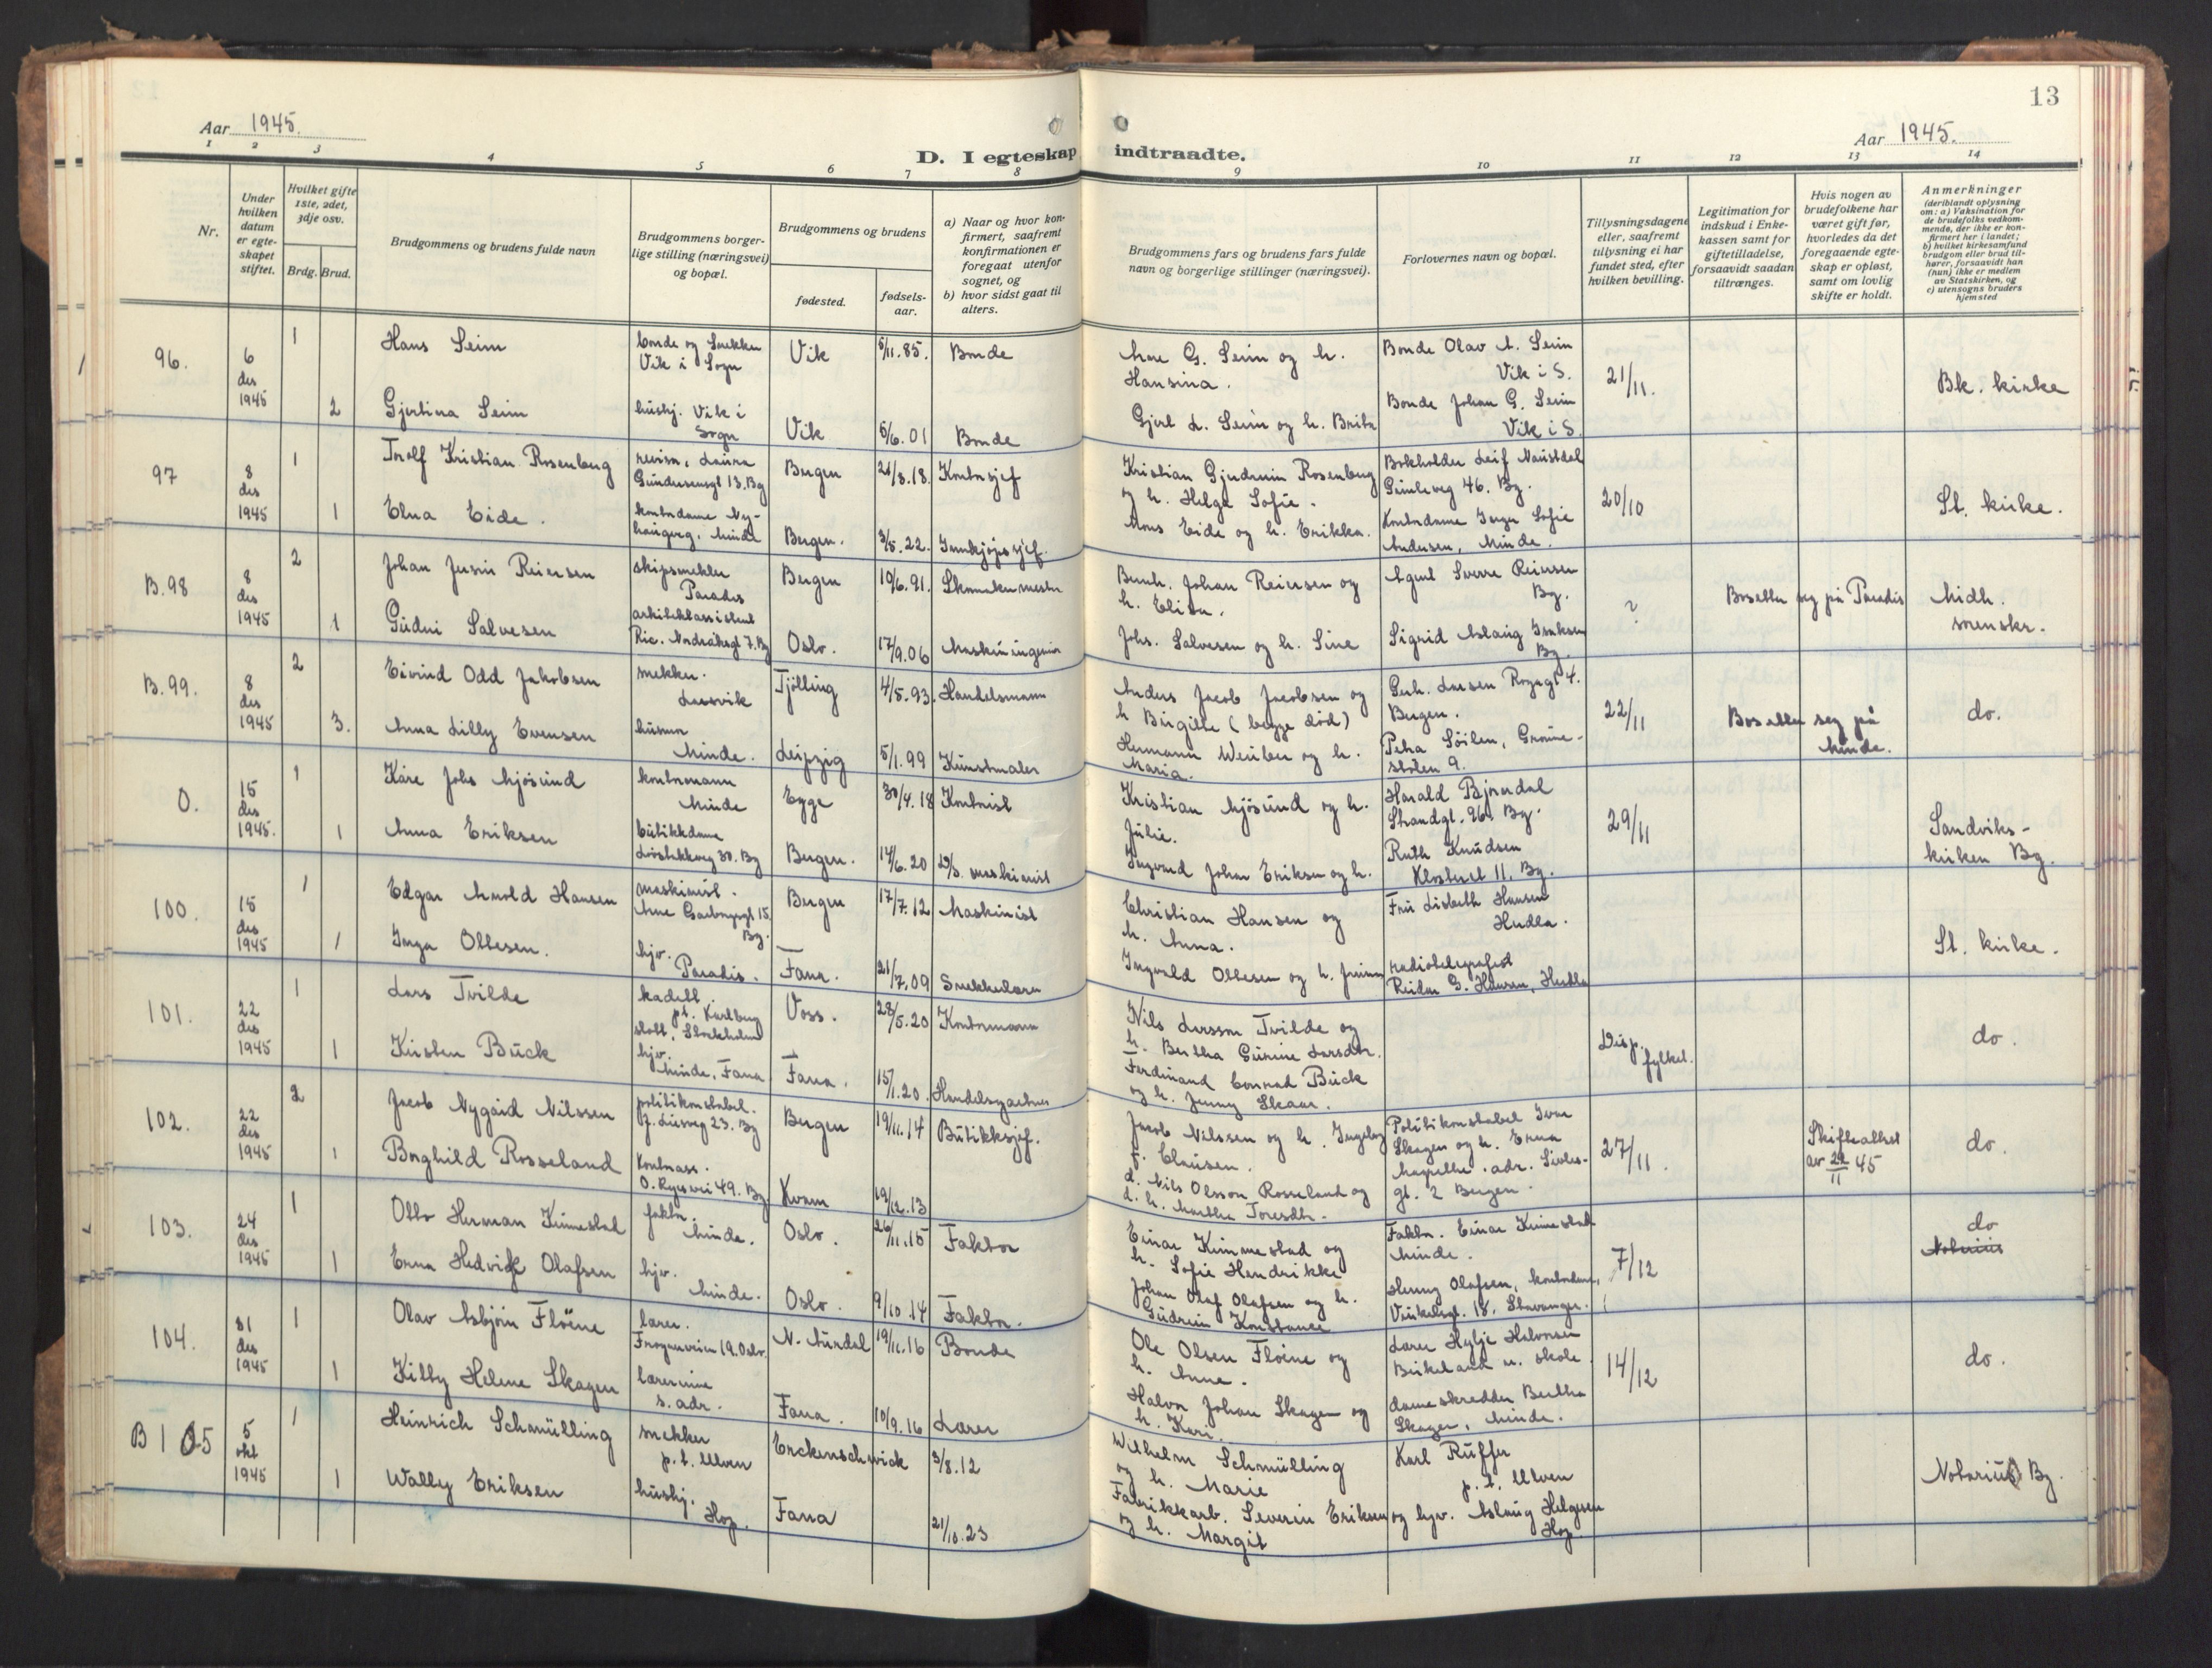 13
Aar 1945.
D. I egteskap indtraadte.
Aar 1945.
1 2 3 4 5 6 7 8 9 10 11 12 13 14
Nr.
Under hvilken datum er egte-skapet stiftet.
Hvilket gifte 1ste, 2det, 3dje osv.
Brdg. Brud.
Brudgommens og brudens fulde navn
Brudgommens borger-lige stilling (næringsvei) og bopæl.
Brudgommens og brudens
fødested.
fødsels-aar.
a) Naar og hvor kon-firmert, saafremt konfirmationen er foregaat utenfor sognet, og
b) hvor sidst gaat til alters.
Brudgommens fars og brudens fars fulde navn og borgerlige stillinger (næringsvei).
Forlovernes navn og bopæl.
Tillysningsdagene eller, saafremt tillysning ei har fundet sted, efter hvilken bevilling.
Legitimation for indskud i Enke-kassen samt for giftetilladelse, forsaavidt saadan tiltrænges.
Hvis nogen av brudefolkene har været gift før, hvorledes da det foregaaende egte-skap er opløst, samt om lovlig skifte er holdt.
Anmerkninger (deriblandt oplysning om: a) Vaksination for de brudefolks vedkom-mende, der ikke er kon-firmert her i landet; b) hvilket kirkesamfund brudgom eller brud til-hører, forsaavidt han (hun) ikke er medlem av Statskirken, og c) utensogns bruders hjemsted
96. 6 des 1945 1 Hans Seim bonde og Snekker Vik i Sogn Vik 5/11.85. Bonde G. Seim og h. Hansina. Bonde Olav A. Seim Vik i S. 21/11. Bk. kirke
2 Gjertina Seim hushj. Vik i Sogn Vik 5/6.01 Bonde Gjert L. Seim og h. Brita Bonde Johan G. Seim Vik i S.
97 8 des 1945 1 Trolf Kristian Rosenberg revisor, Laura Gundersensgt 13. Bg Bergen 21/8.18. Kontorsjef Kristian Gjudmin Rosenberg og h. Helga Sofie. Bokholder Leif Naustdal Gimleveg 46. Bg. 20/10 St. kirke.
1 Elna Eide. kontordame Ny-haugveg. Minde Bergen. 3/5.22. Innkjøpssjef. Mons Eide og h. Erikka. Kontordame Inger Sofie Andersen, Minde.
B.98 8 des 1945 2 Johan Jensin Reiersen skipsmekler Paradis Bergen 19/6.91. Skomakermester Bernh. Johan Reiersen og h. Elisa. Agent Sverre Reiersen Bg. ? Bosetter seg på Paradis Midh. menskr.
1 Gudni Salvesen arkitektassistent Ric. Nordraksgt 7. Bg Oslo. 17/9.06 Maskiningeniør Johs. Salvesen og h. Sine Sigrid Aslaug Isaksen Bg.
B.99. 8 des 1945 2 Eivind Odd Jakobsen snekker. Larvik Tjölling 4/5.93. Handelsmann Anders Jacob Jacobsen og h Birgitte (begge död) Gerh. Larsen Rozagt 4. Bergen. 22/11 Bosetter seg på Minde. do.
3. Anna Lilly Evensen husmor Minde. Leipzig 5/1.99 Kunstmaler Hermann Weuber og h. Maria. Petra Söilen, Grönne-stölen 9.
0. 15 des 1945. 1 Kåre Johs Mjösund kontormann Minde Egge 30/4.18 Kontorist Kristian Mjösund og h. Julie. Harald Bjordal Strandgt. 96. Bg. 29/11 Sandviks-kirken Bg.
1 Anna Eriksen butikkdame Lövstakkveg 30. Bg Bergen. 14/6.20 maskinist Ingvard Johan Eriksen og h. Ruth Knudsen Klostret 11. Bg.
100. 15 des 1945 1 Edgar Arnold Hansen maskinist. Arne Garborgsgt 15. Bg. Bergen 17/7.12 Maskinist Christian Hansen og h. Anna. Fru Lisbeth Hansen Herdla. St. kirke.
1 Inga Ottesen. hjv. Paradis. Fana. 21/7.09 Snekkerlærer Ingvald Ottesen og h. radiotelegrafist Reidar G. Hansen, Herdla
101. 22 des 1945 1 Lars Tvilde kadett. p.t. Karlberg slott, Stockholm Voss. 28/5.20 Kontormann Nils Larsson Tvilde og h. Bertha Gurine Larsdtr. Disp. fylket. do.
1 Kirsten Buck hjv. Minde, Fana Fana. 15/1.20. Handelsgartner Ferdinand Conrad Buck og h. Jenny Skaar.
102. 22 des 1945 2 Jacob Nygård Nilssen politikonstabel. 23. Bg Bergen 19/11.14 Butikksjef. Jacob Nilssen og h. Ingeborg f. Clausen. Politikonstabel Ivar Skagen og h. Erna Magrethe. adr. gt. 2 Bergen. 27/11. Skifteattest av 22/11 45 do.
1 Borghild Rosseland Kontorass. O. Ryesvei 49. Bg Kvam 19/12.13 d. Nils Olsson Rosseland og d. h. Martha Toresdtr.
103. 24 des 1945 1 Otto Herman Kimmestad faktor. Minde. Oslo. 26/11.15 Faktor Einar Kimmestad og h. Sofie Hendrikke Faktor. Einar Kimmestad Minde. 7/12 do Notarius
1 Erna Hedvig Olafsen hjv. Minde. Oslo. 9/10.14 Faktor. Johan Olaf Olafsen og h. Gudrun Konstance Henny Olafsen, kontordame, 18. Stavanger.
104. 31 des 1945 1 Olav Asbjörn Flöene lærer. Frognerveien 19. Oslo. N. Aurdal 19/11.16 Bonde Ole Olsen Flöene og h. Anne. Lærer Hylje Halvorsen Birkeland u. skole 14/12 do.
1 Kitty Helene Skagen lærerinne s. adr. Fana. 10/9.16 Lærer Halvor Johan Skagen og h. Kari. dameskredder Bertha Skagen, Minde.
B 105 5 okt 1945 1 Heinrich Schmülling snekker p.t. Ulven Erckenschwick 3/8.12 Wilhelm Schmülling og h. Marie Karl Ruffer p.t. Ulven Notarius Bg.
1 Wally Eriksen hushj. Hop. Fana 21/10.23 Fabrikkarb. Severin Eriksen og h. Margit og hjv. Aslaug Helgesen Hop.